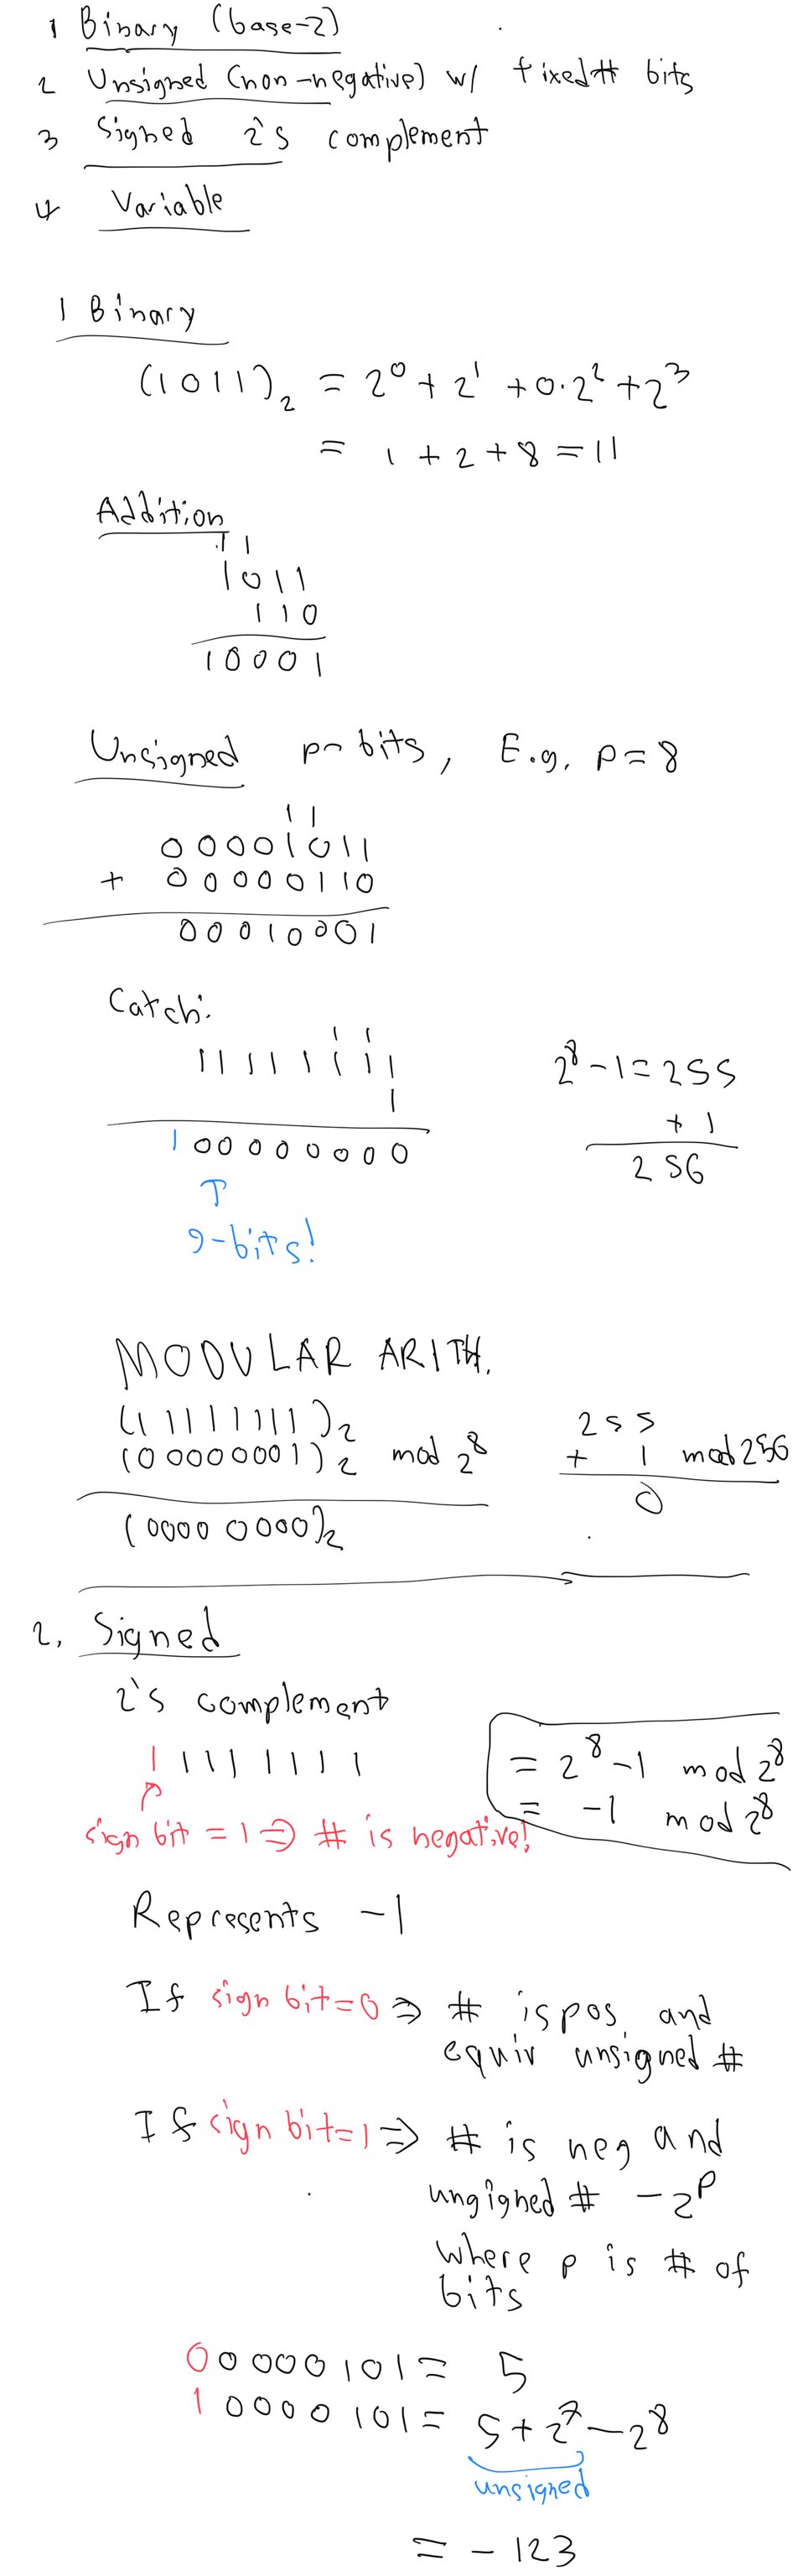 1 Binary (base-2)
2 Unsigned (non-negative) w/ fixed # bits
3 Signed 2's complement
4 Variable
1 Binary
(1011)₂ = 2⁰ + 2¹ + 0·2² + 2³
= 1 + 2 + 8 = 11
Addition
1 1
1011
110
10001
Unsigned p-bits, E.g. p=8
1 1
00001011
+ 00000110
00010001
Catch:
1 1
11111111
1
100000000
2⁸ - 1 = 255
+ 1
256
↑
9-bits!
MODULAR ARITH.
(11111111)₂
(00000001)₂ mod 2⁸
(0000 0000)₂
255
+ 1 mod 256
0
2. Signed
2's complement
11111111
= 2⁸ - 1 mod 2⁸
= -1 mod 2⁸
sign bit = 1 ⇒ # is negative!
Represents -1
If sign bit=0 ⇒ # is pos. and
equiv unsigned #
If sign bit=1 ⇒ # is neg and
ungigned # - 2ᵖ
where p is # of
bits
00000101 = 5
10000101 = 5 + 2⁷ - 2⁸
unsigned
= - 123